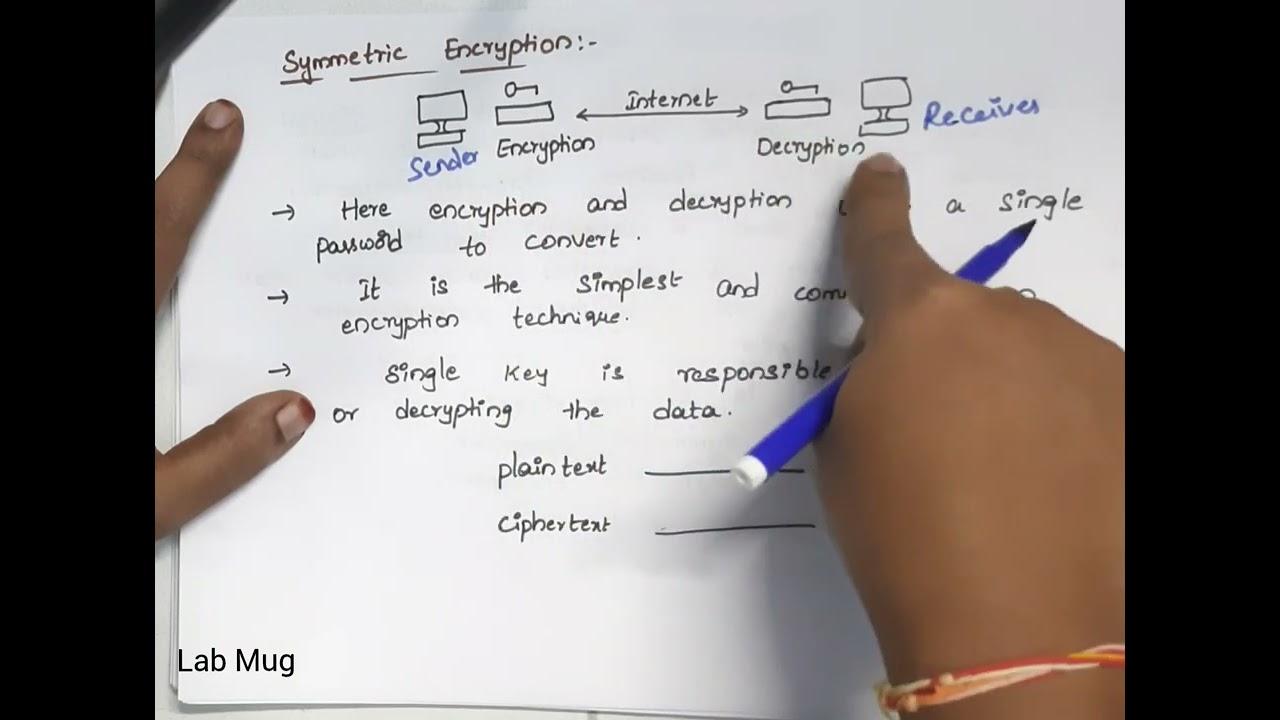 Symmetric Encryption:-
Internet
Sender Encryption Decryption Receives
→ Here encryption and decryption a single
password to convert.
→ It is the simplest and
encryption technique.
→ single key is responsible
or decrypting the data.
plain text
ciphertext
Lab Mug